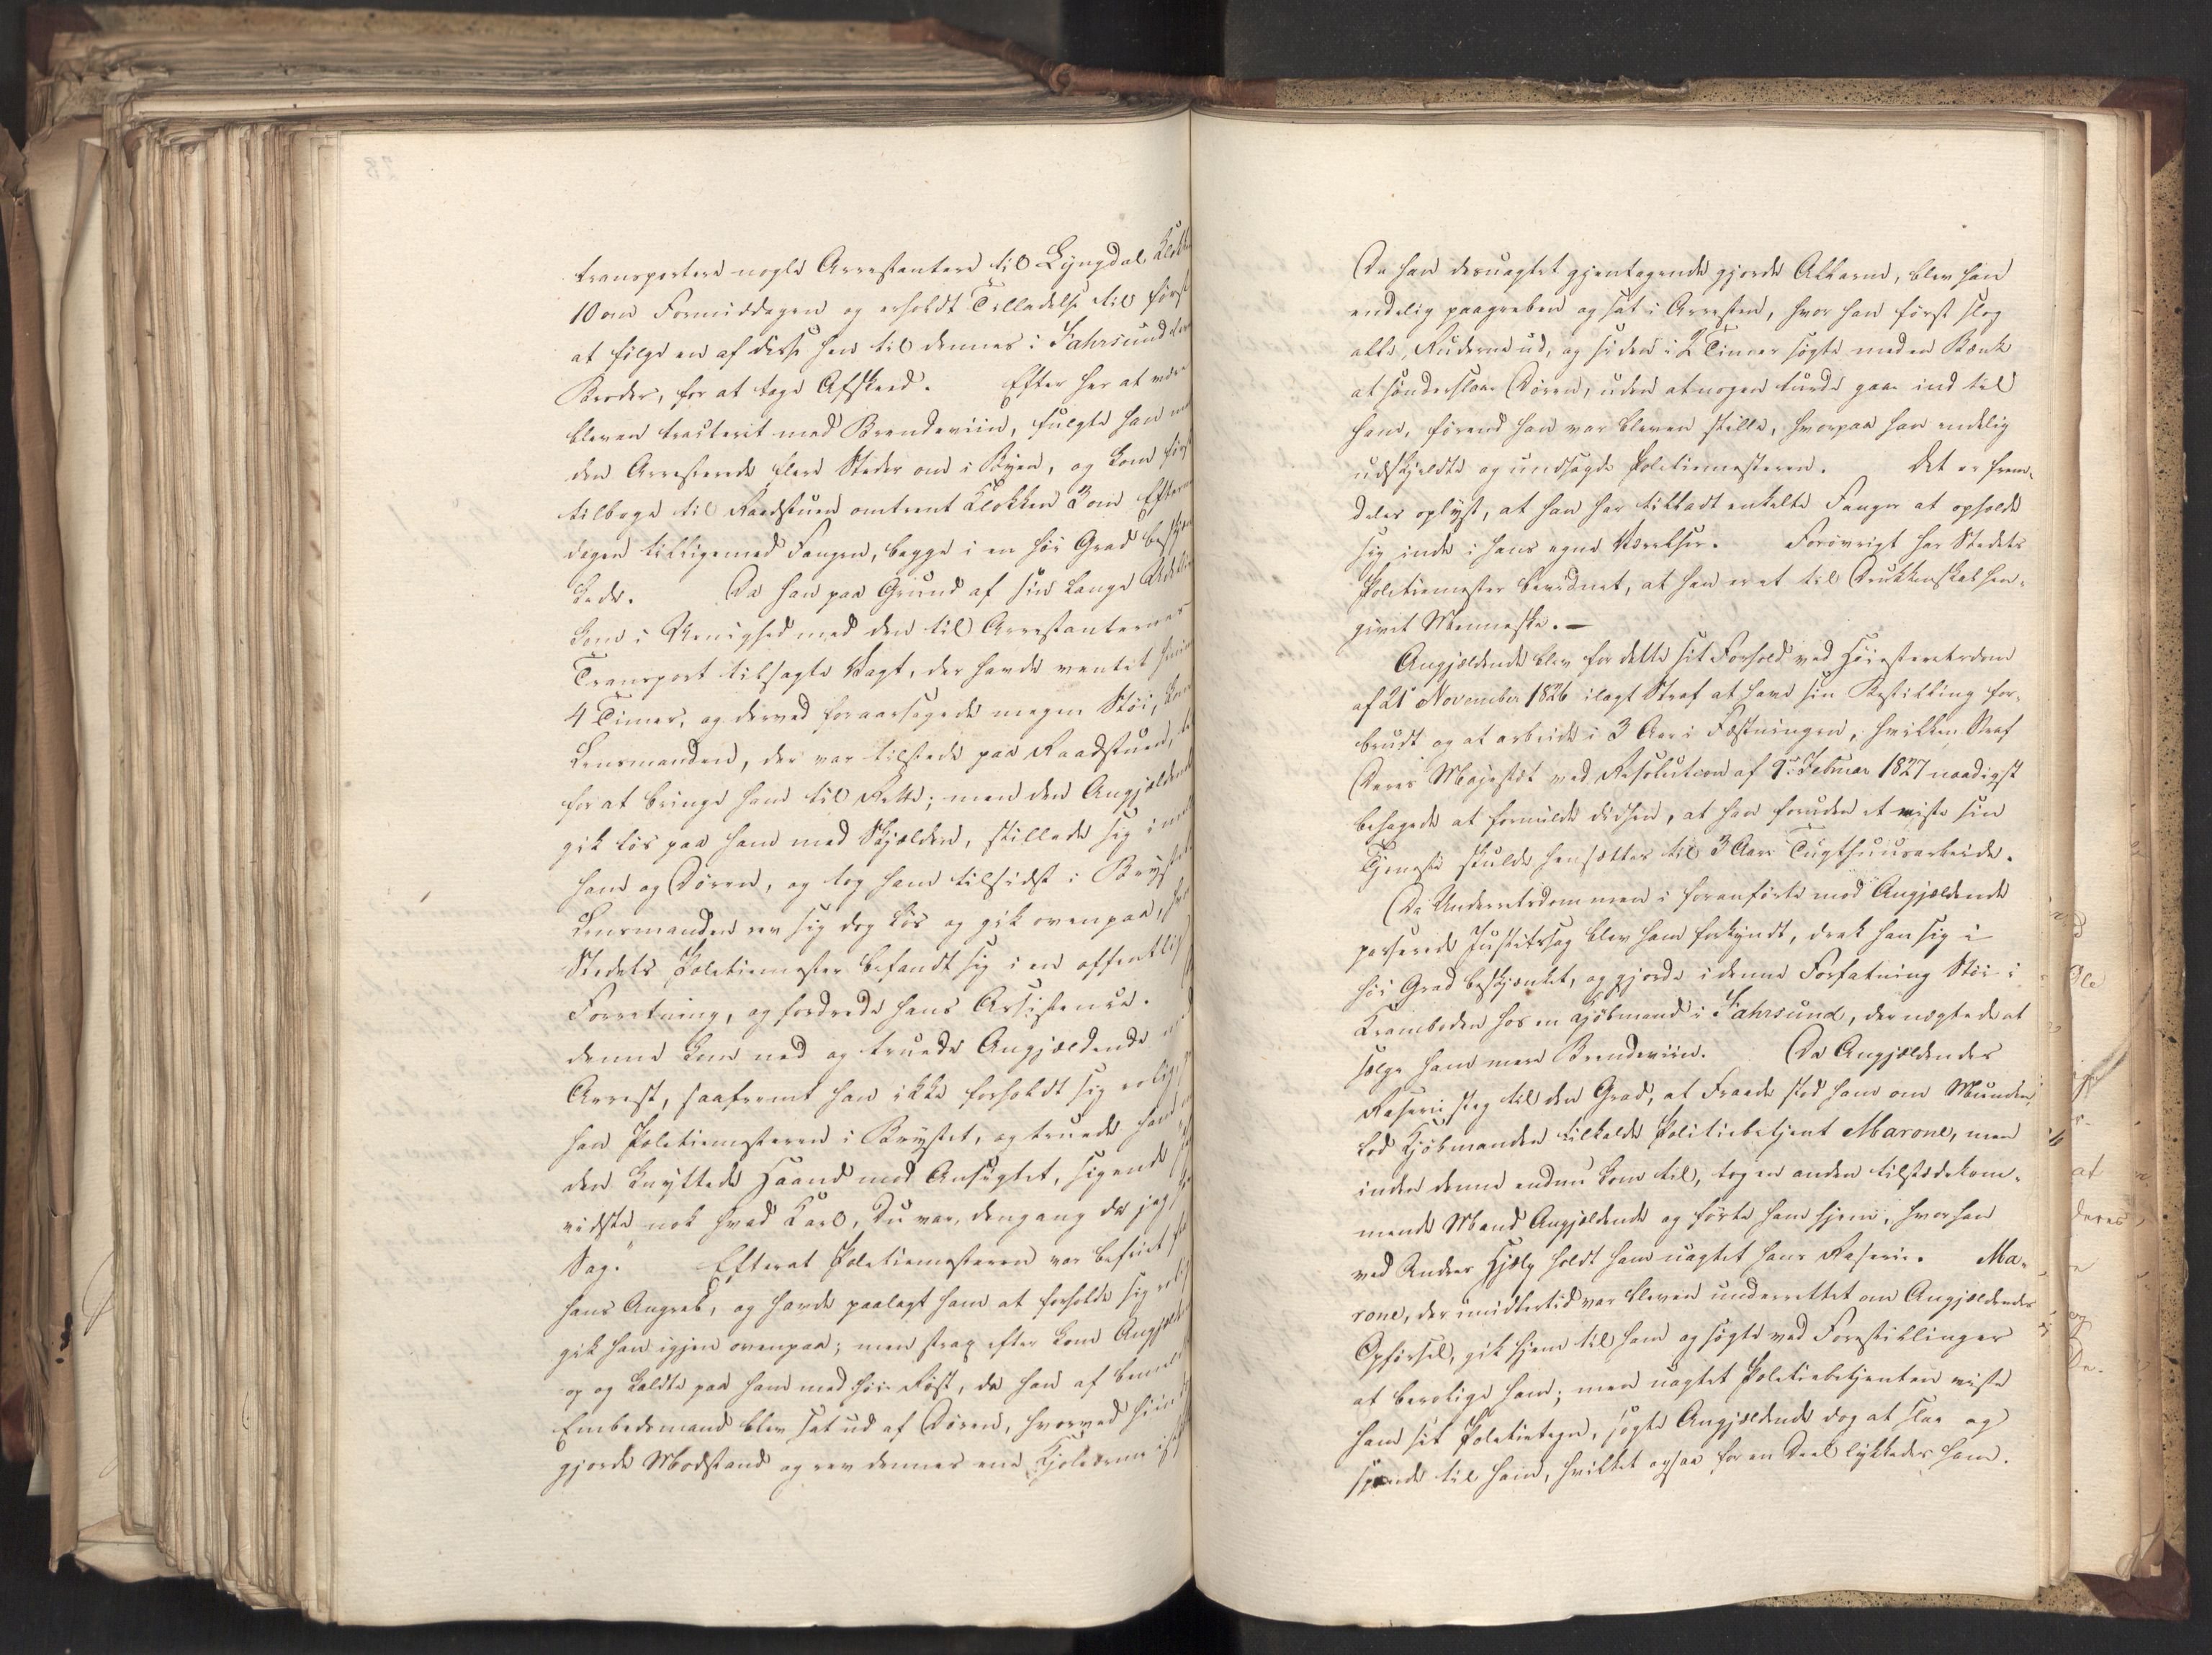 transportere nogle Arrestantere til Lyngdal
10 om Formiddagen og erholdt Tilladelse til først
at følge en af disse hen til dennes i Fahrsund
Broder, for at tage Afskeed. Efter her at være
bleven tracterit med Brendeviin, fulgte han
den Arresterede flere Steder om i Byen, og kom først
tilbage til Raadstuen omtrent Klokken 3 om
dagen tilligemed Fangen, begge i en høi Grad
kede. Da han paa Grund af sin lange
kom i Uenighed med den til Arrestanternes
Transport tilsagte Vagt, der havde ventet
4 Timer, og derved foraarsagede megen Støi,
Lensmanden, der var tilstede paa Raadstuen,
for at bringe ham til Rette; men den
gik løs paa ham med Skjælden, stillede sig
ham og Døren, og tog ham tilsidst i
Lensmanden rev sig dog løs og gik ovenpaa,
Stedets Politiemester befandt sig i en offentlig
Forretning, og fordrede hans Assistence.
denne kom ned og truede Angjældende
Arrest, saafremt han ikke forholdt sig rolig,
han Politiemesteren i Brystet, og truede
den knyttede Haand mod Ansigtet, sigende
vidste nok hvad Karl, Du var, dengang da jeg
Sag." Efterat Politiemesteren var befriet
hans Angreb, og havde paalagt ham at forholde sig
gik han igjen ovenpaa; men strax efter kom
op og kaldte paa ham med høi Røst, da han af
Embedsmand blev sat ud af Døren, hvorved
gjorde Modstand og rev dennes ene Kjoleærme
Da han desuagtet gjentagende gjorde Allarm, blev han
endelig paagreben og sat i Arresten, hvor han først slog
alle Ruderne ud, og siden i 2 Timer søgte med en Bænk
at sønderslaae Døren, uden at nogen turde gaae ind til
ham, førend han var bleven stille, hvorpaa han endelig
udskjeldte og undsagde Politiemesteren. Det er frem-
deles oplyst, at han har tilladt enkelte Fanger at opholde
sig inde i hans egne Værelser. Forøvrigt har Stedets
Politiemester bevidnet, at han er et til Drukkenskab hen-
givet Menneske. —
Angjældende blev for dette sit Forhold ved Høiesteretsdom
af 21 November 1826 ilagt Straf at have sin Bestilling for-
brudt og at arbeide i 3 Aar i Fæstningen, hvilken Straf
Deres Majestæt ved Resolution af 9 Februar 1827 naadigst
behagede at formilde didhen, at han foruden at miste sin
Tjeneste skulde hensættes til 3 Aars Tugthuusarbeide.
Da Underretsdommen i foranførte mod Angjældende
passerede Justitssag blev ham forkyndt, drak han sig i
høi Grad beskjænket, og gjorde i denne Forfatning Støi i
Kramboden hos en Kjøbmand i Fahrsund, der nægtede at
sælge ham mere Brendeviin. Da Angjældendes
Raserie steg til den Grad, at Fraade stod ham om Munden,
lod Kjøbmanden tilkalde Politiebetjent Marone, men
inden denne endnu kom til, tog en anden tilstedekom-
mende Mand Angjældende og førte ham hjem, hvor han
ved Andres Hjelp holdt ham uagtet hans Raserie. Ma-
rone, der imidlertid var bleven underrettet om Angjældendes
Opførsel, gik hjem til ham og søgte ved Forestillinger
at berolige ham; men uagtet Politiebetjenten viste
ham sit Politietegn, søgte Angjældende dog at slaae og
spænde til ham, hvilket ogsaa for en Deel lykkedes ham.